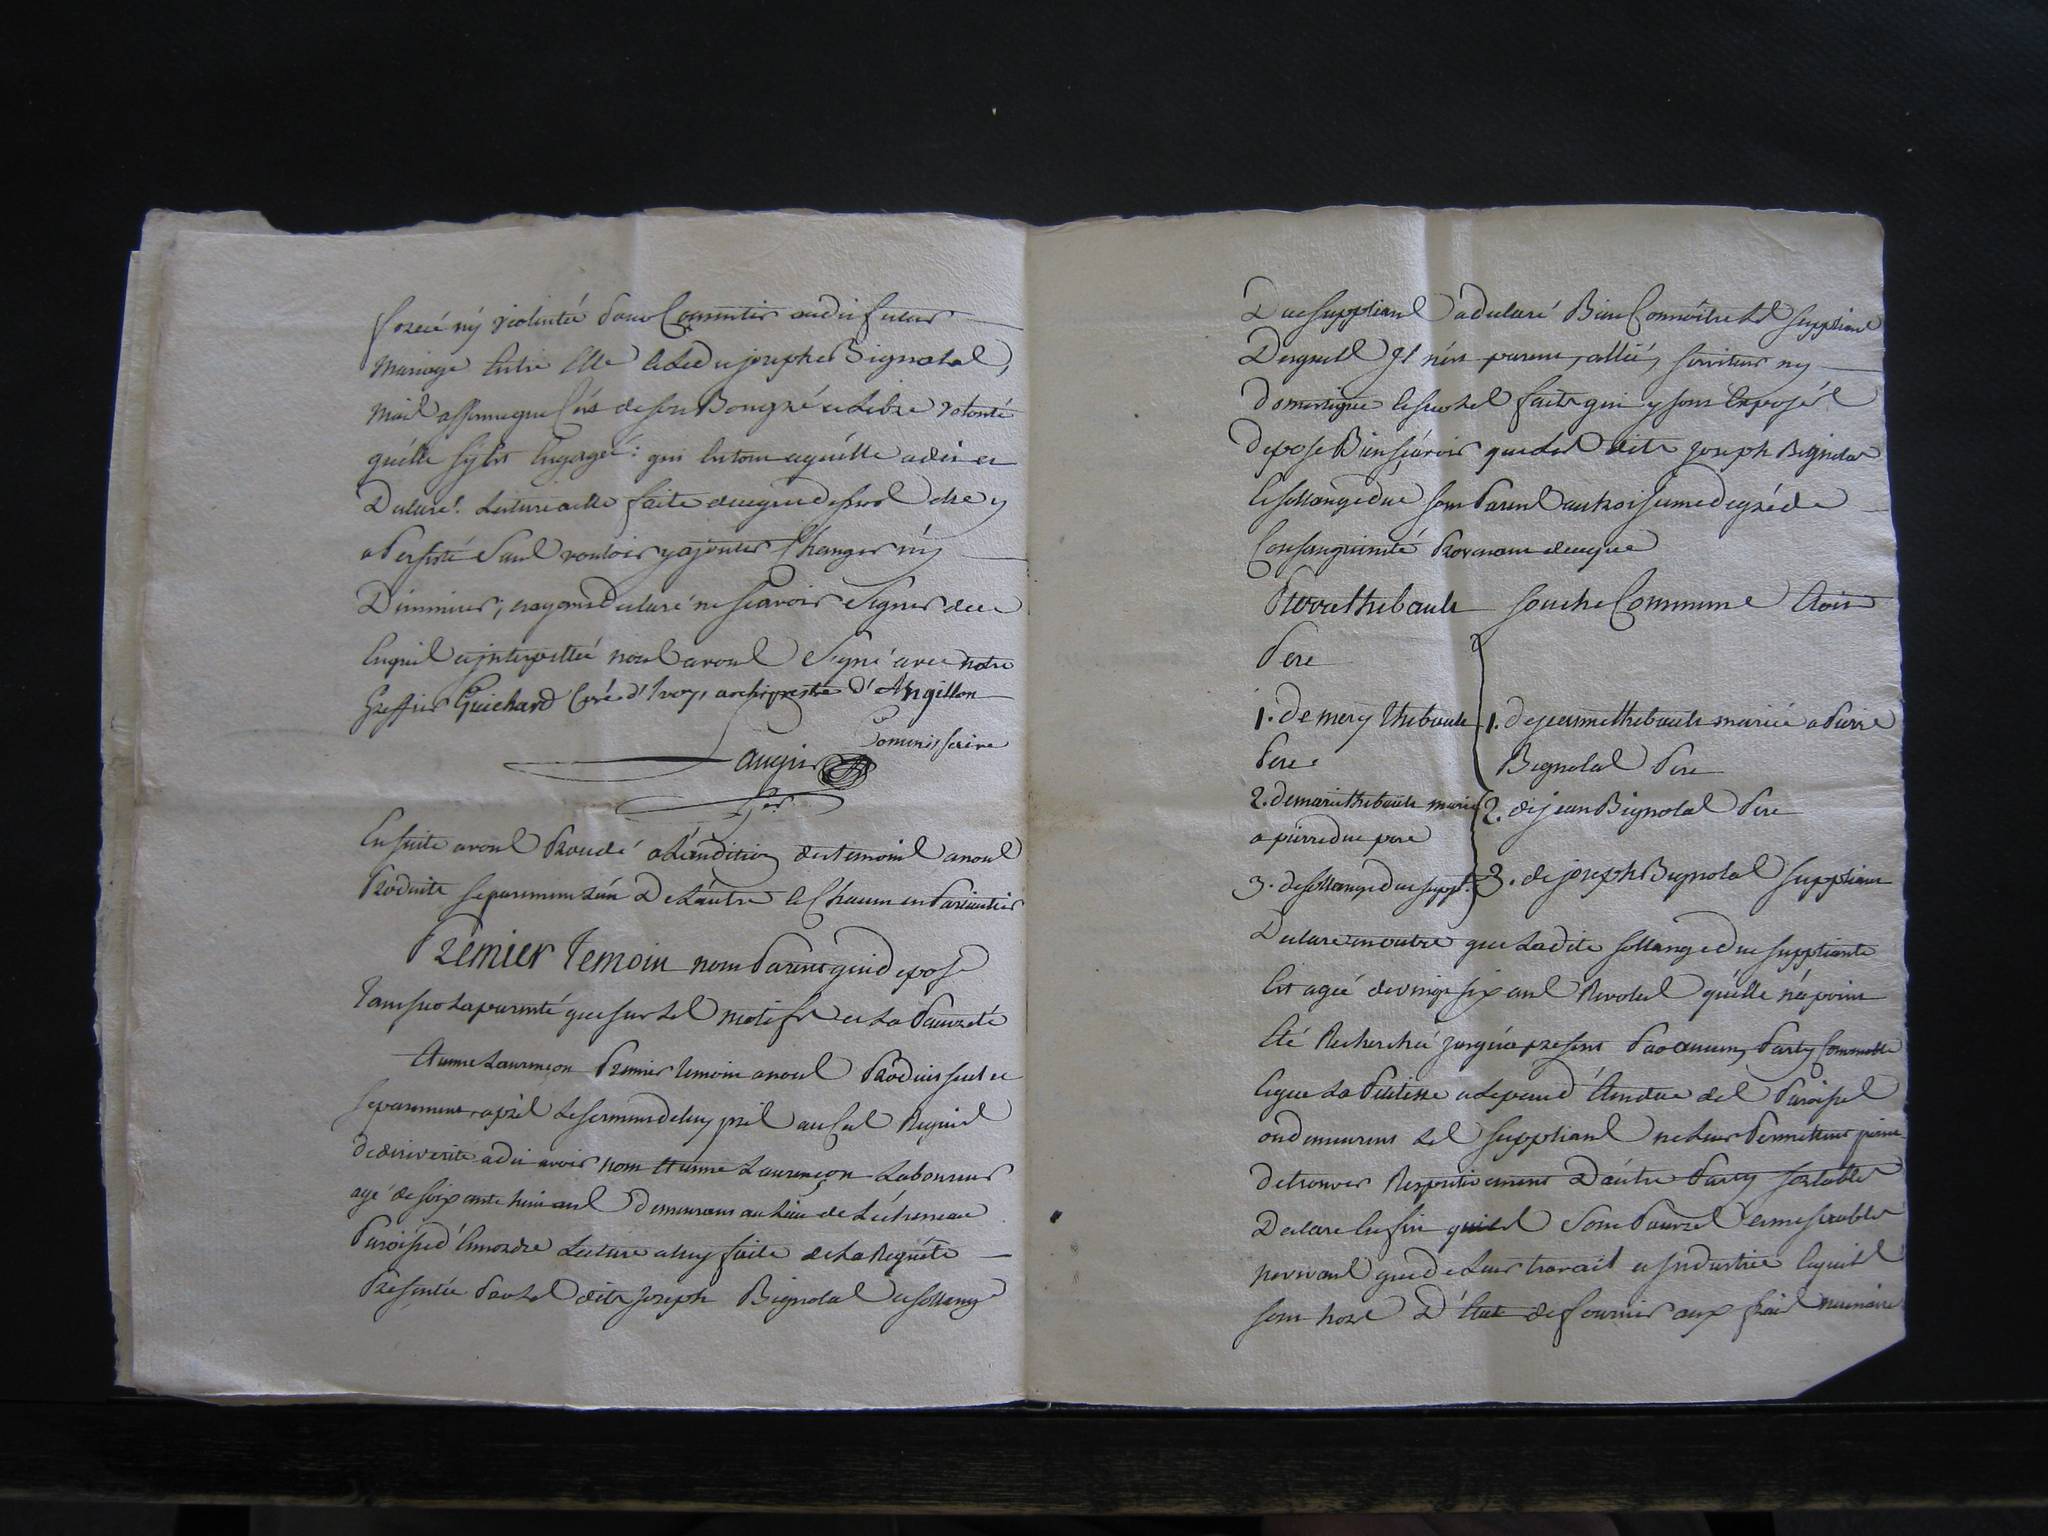 forcé ny violentée pour Consentir audit futur
Mariage Entre Elle et Ledit joseph Bignolas,
Mais assure que C'est de son Bongré et Libre volonté
qu'elle s'y est Engagée: qui Est tout ce qu'elle a dit et
Declaré. Lecture a elle faite de ce que dessus elle y
a Persisté Sans vouloir y ajouter Changer ny
Diminuer, et ayant declaré ne sçavoir Signer de ce
Enquis et jnterpellée nous avons Signé avec notre
Greffier Guichard Curé d'Ivoy, archiprestre d'Angillon
Commissaire
augier
Ger
Ensuite avons Procedé a L'audition des temoins a nous
Produits separement L'un De L'autre et Chacun en Particulier
Premier Temoin non Parent qui depose
Tant sur La parenté que sur Les motifs et La Pauvreté
Etienne Laurençon Premier temoin a nous Produit seul et
separement, après Le serment de luy pris au Cas Requis
de dire verité a dit avoir nom Etienne Laurençon Laboureur
agé de soixante huit ans Demeurant au Lieu de L'écheneau
Paroisse d'Ennordre Lecture a luy faite de La Requête
Presentée Par Les dits Joseph Bignolas et sollange
Due suppliants a declaré Bien Connoître Les suppliants
Desquels Il n'est parent, allié, serviteur ny
Domestique et sur Les faits qui y sont Exposés
depose Bien sçavoir que Les dits joseph Bignolas
et sollange due sont Parens au troisieme degré de
Consanguinité Provenant de ce que
Pierre thibault souche Commune Etoit
Pere
1. de mery thibault
Pere.
2. de marie thibault mariée
a pierre due pere
3. de sollange due suppl.te
1. de jeanne thibault mariée a Pierre
Bignolas Pere
2. de jean Bignolas Pere
3. de joseph Bignolas suppliant
Declare en outre que Ladite sollange due suppliante
Est agée de vingt six ans Revolus qu'elle n'a point
Eté Recherchée jusqu'a present Par aucun Party Convenable
et que La Petitesse et Le peu d'Etendue des Paroisses
ou demeurent Les suppliants ne Leur Permettent point
de trouver Respectivement D'autre Party sortable
Declare Enfin qu'ils Sont Pauvres et miserables
ne vivans que de Leur travail et Industrie et qu'ils
sont hors D'Etat de fournir aux frais necessaires